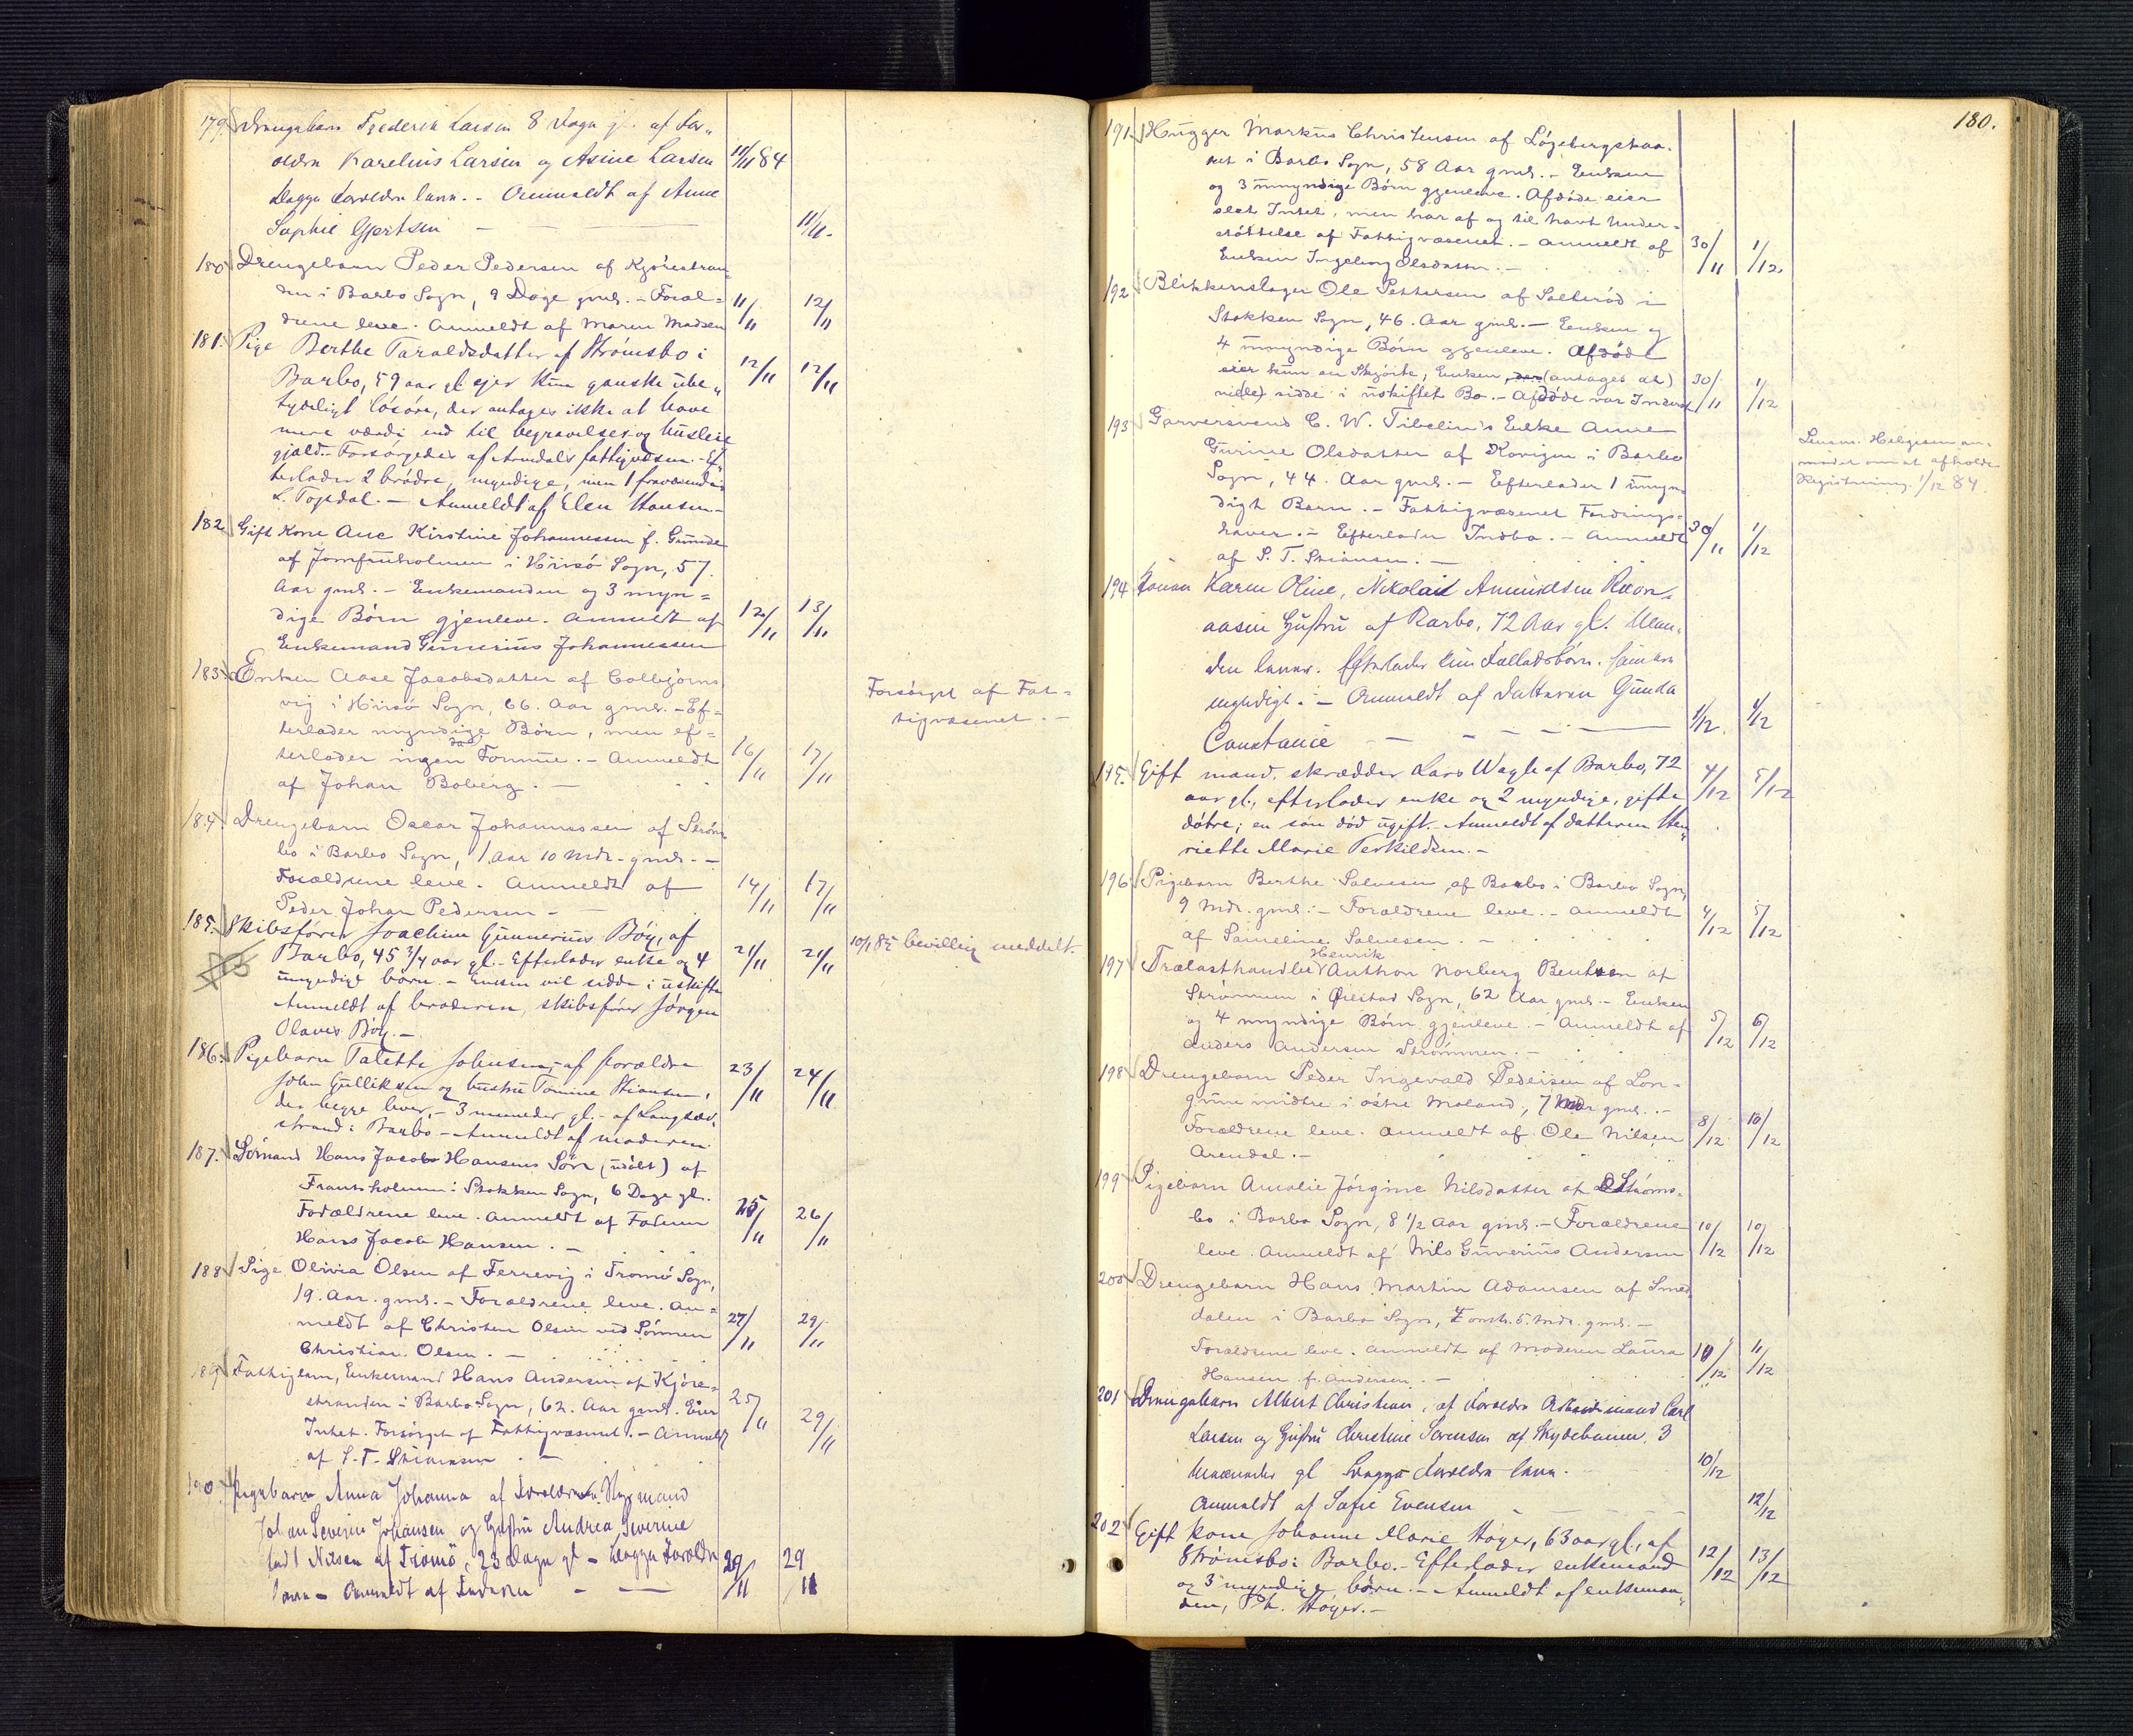 179. Drengebarn Frederik Larsen 8 Dage gl. af For„
ældre Karelius Larsen og Asine Larsen 11/11 84
begge forældre leve. - Anmeldt af Anne
Sophie Gjertsen — — 11/11.
180 Drengebarn Peder Pedersen af Kjörestran-
den i Barbo Sogn, 9 Dage gml. - Foræl= 11/11 12/11
drene leve. Anmeldt af Maren Madsen
181. Pige Berthe Taraldsdatter af Strömsbo i
Barbo, 59 aar gl. ejer kun ganske ube„ 12/11 12/11
tydeligt lösöre, der antages ikke at have
mere værdi end til begravelses- og husleie
gjæld. - Forsörgedes af Arendals fattigvæsen. - Ef„
terlader 2 brödre, myndige, men 1 fraværende
L. Topdal. - Anmeldt af Elen Hansen -
182 Gift Kone Ane Kirstine Johannessen f. Gunde
af Jomfruholmen i Hisö Sogn, 57.
Aar gml. - Enkemanden og 3 myn=
dige Börn gjenleve. Anmeldt af 12/11 13/11
Enkemand Gunerius Johannessen
183 Enken Aase Jacobsdatter af Colbjörns
vig i Hisö Sogn, 66. Aar gml. - Ef= Forsörget af Fat=
terlader myndige Börn, men ef= tigvæsenet. -
terlader ingen Formue. - Anmeldt 16/11 17/11
af Johan Boberg. —
184. Drengebarn Oscar Johannessen af Ströms
bo i Barbo Sogn, 1 Aar 10 Mdr. gml. -
Forældrene leve. Anmeldt af 14/11 17/11
Peder Johan Pedersen -
185. Skibsförer Joachim Gunnerius Böy, af
Barbo, 45 3/4 aar gl. - Efterlader enke og 4 21/11 21/11 10/1 85 bevilling meddelt.
umyndige börn. - Enken vil sidde i uskifte
Anmeldt af broderen, skibsförer Jörgen
Olaves Böy. -
186. Pigebarn Talette Johnsen, af forældre
John Gulliksen og hustru Tomine Stiansen, 23/11 24/11
der begge lever, - 3 maaneder gl. - af Langsæd-
strand i Barbo - Anmeldt af moderen.
187. Sömand Hans Jacob Hansens Sön (udöbt) af
Frantsholmen i Stokken Sogn, 6 Dage gl.
Forældrene leve. Anmeldt af Faderen 25/11 26/11
Hans Jacob Hansen. -
188 Pige Olivia Olsen af Færevig i Tromö Sogn,
19. Aar. gml. - Forældrene leve. An=
meldt af Christen Olsen ved Sönnen 27/11 29/11
Christian Olsen. -
189 Fattiglem, Enkemand Hans Andersen af Kjöre-
stranden i Barbo Sogn, 62. Aar gml. Eier 25/11
Intet. Forsörget af Fattigvæsenet. - Anmeldt 29/11
af S. T. Stiansen. -
190 Pigebarn Anna Johanna af Forældrene Styrmand
Johan Severin Johansen og Hustru Andrea Severine
född Nilsen af Tromö, 23 Dage gl - begge Forældre 29/11 29/11
leve - Anmeldt af Faderen — —
180.
191 Hugger Markus Christensen af
ret i Barbo Sogn, 58 Aar gml. - Enken
og 3 umyndige Börn gjenleve. Afdöde eier
slet Intet, men har af og til havt Under-
stöttelse af Fattigvæsenet. - Anmeldt af 30/11 1/12
Enken Ingeborg Olsdatter. -
192 Blikkenslager Ole Pettersen af Salteröd i
Stokken Sogn, 46. Aar gml. - Enken og
4 umyndige Börn gjenleve. Afdöde
eier kun en Skjöite, Enken, der (antages at) 30/11 1/12
vil(le) sidde i uskiftet Bo. - Afdöde var Inderst
193 Garversvend C. W. Tibelin's Enke Anne
Gurine Olsdatter af Kovigen i Barbo Lensm. Helgesen an-
Sogn, 44. Aar gml. - Efterlader 1 umyn- modet om at afholde
digt Barn. - Fattigvæsenet Fordrings- Registrering. 1/12 84.
haver. - Efterlader Indbo. - Anmeldt 30/11 1/12
af S. T. Stiansen. -
194 Konen Karen Oline, Nikolai Amundsen
Hustru af Barbo, 72 Aar gl. Man-
den lever. Efterlader kun Fællesbörn. Samtlige
myndige. - Anmeldt af Datteren Gunda
Constance — — 1/12 1/12
195. Gift mand, skrædder Lars Wagle af Barbo, 72 4/12 5/12
aar gl., efterlader enke og 2 myndige, gifte
dötre; en sön död ugift. - Anmeldt af datteren Hen„
riette Marie Terkildsen. -
196 Pigebarn Berthe Salvesen af Barbo i Barbo Sogn,
9 Mdr. gml. - Forældrene leve. - Anmeldt 4/12 5/12
af Sameline Salvesen. -
197 Trælasthandler Henrik Anthon Norberg Bentsen af
Strömmen i Öiestad Sogn, 62 Aar gml. - Enken
og 4 myndige Börn gjenleve. - Anmeldt af 5/12 6/12
Anders Andersen Strömmen. -
198 Drengebarn Peder Ingevald Pedersen af Lon-
gume midtre i östre Moland, 7 Mdr gml. -
Forældrene leve. Anmeldt af Ole Nilsen 8/12 10/12
Arendal. -
199 Pigebarn Amalie Jörgine Nilsdatter af Ströms-
bo i Barbo Sogn, 8 1/2 Aar gml. - Forældrene 10/12 10/12
leve. Anmeldt af Nils Gunerius Andersen
200 Drengebarn Hans Martin Adamsen af Smed
dalen i Barbo Sogn, omtr. 5. Mdr. gml. -
Forældrene leve. Anmeldt af Moderen Laura 10/12 11/12
Hansen f. Andersen. -
201 Drengebarn Albert Christian, af Forældre Arbeidsmand Carl
Larsen og Hustru Christine Sörensen af Skydebanen, 3
Maaneder gl begge Forældre leve. 10/12
Anmeldt af Sofie Evensen 12/12
202 Gift kone Johanne Marie Höyer, 63 aar gl., af
Strömsbo i Barbo. - Efterlader enkemand 12/12 13/12
og 3 myndige börn. - Anmeldt af enkeman„
den, Ph. Höyer. -